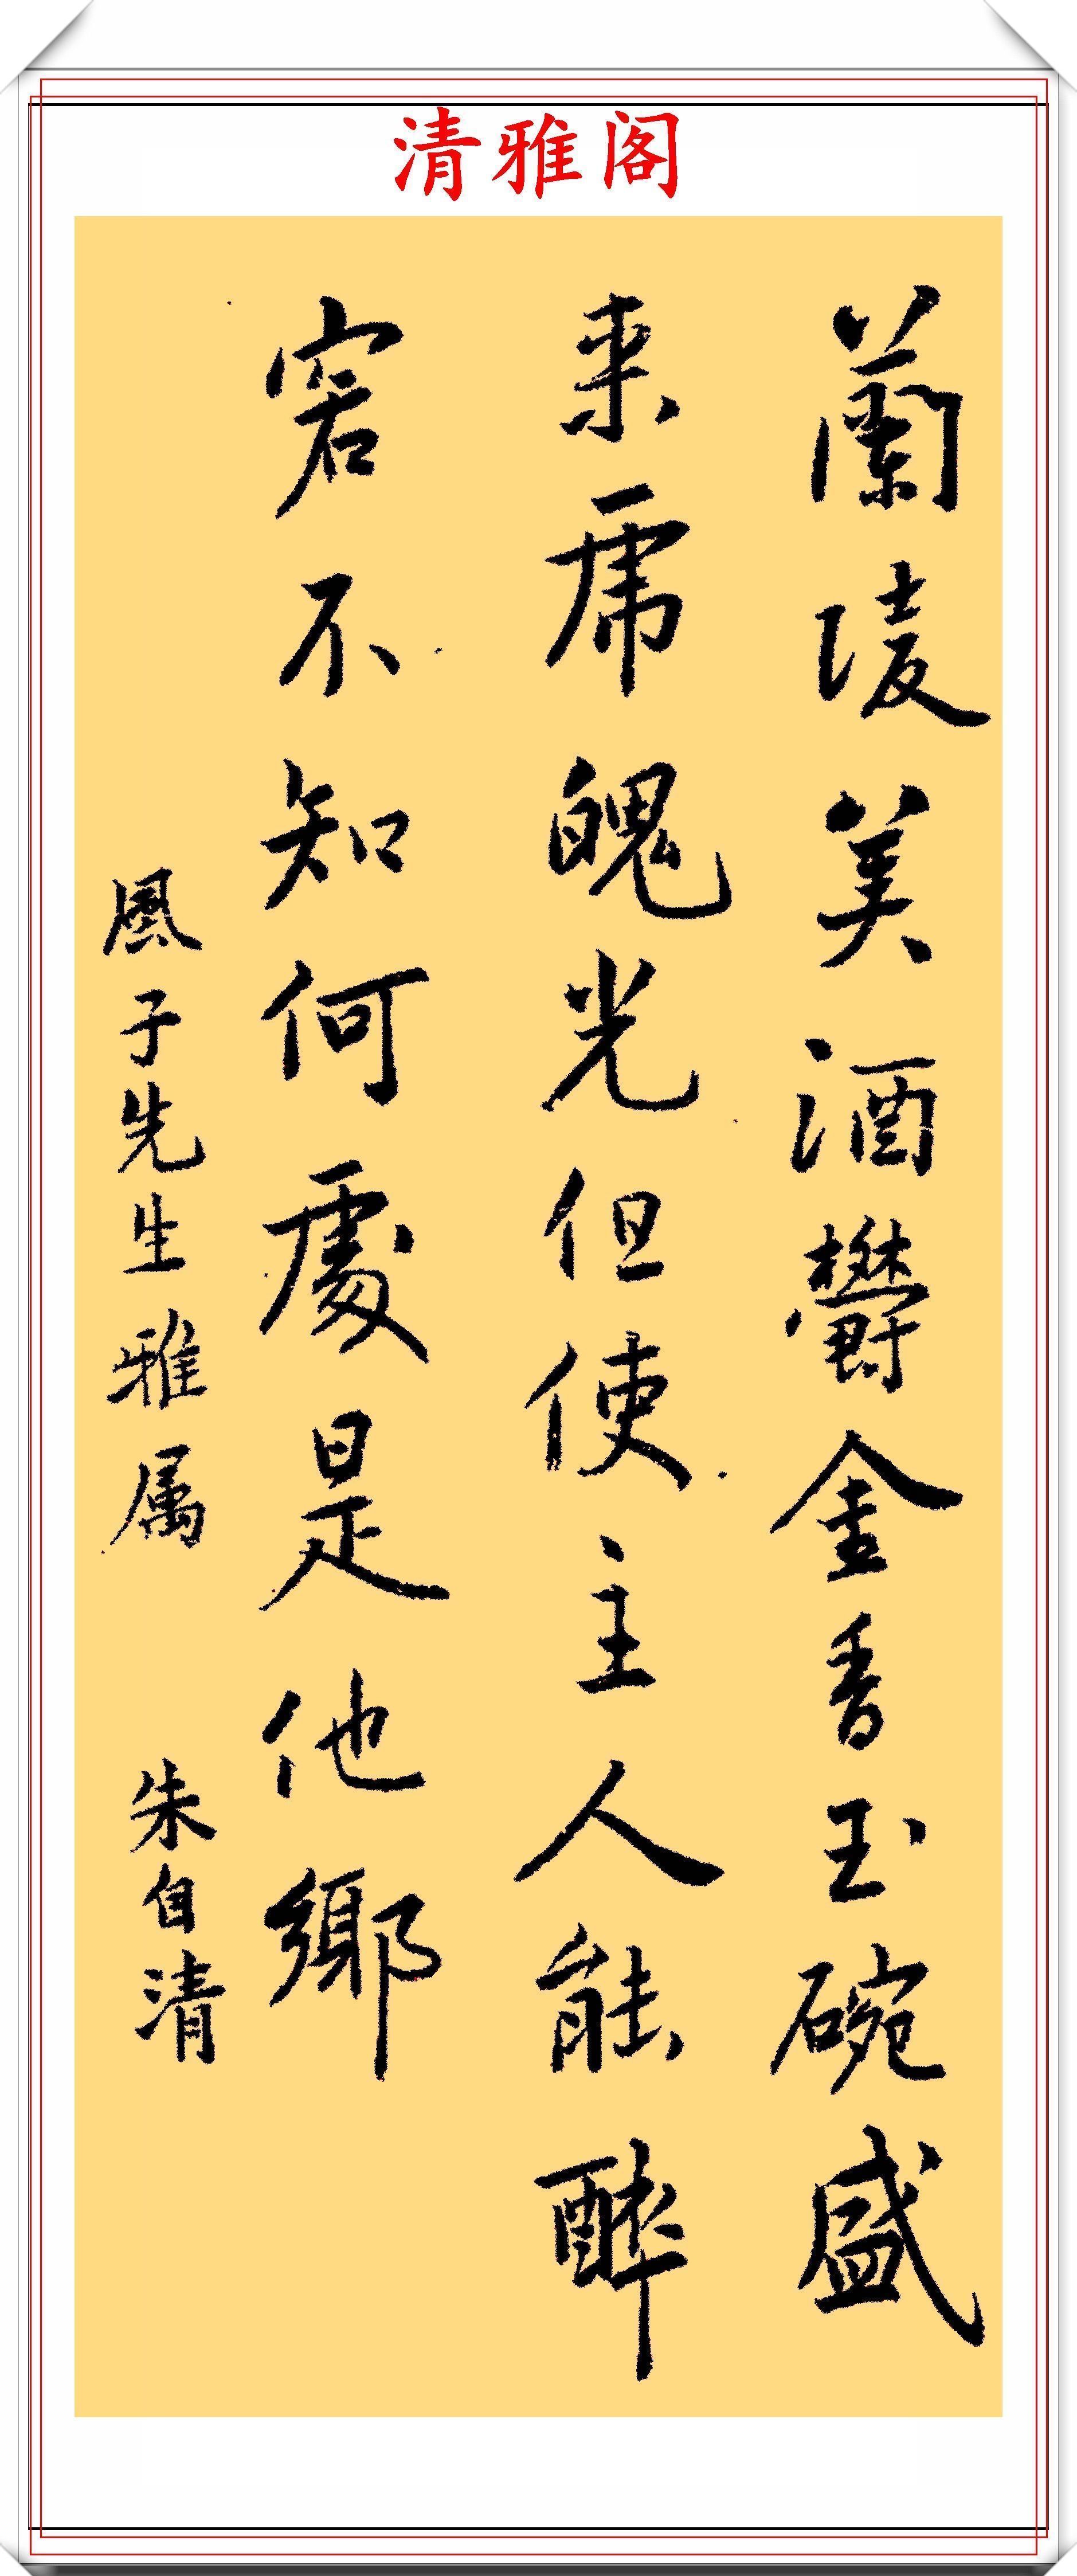 清雅阁
蘭陵美酒欝金香玉碗盛
来琥魄光但使主人能醉
客不知何處是他鄉
風子先生雅属
朱自清